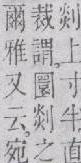 剡上寸半直
裁謂、圜剡之
爾雅又云、宛